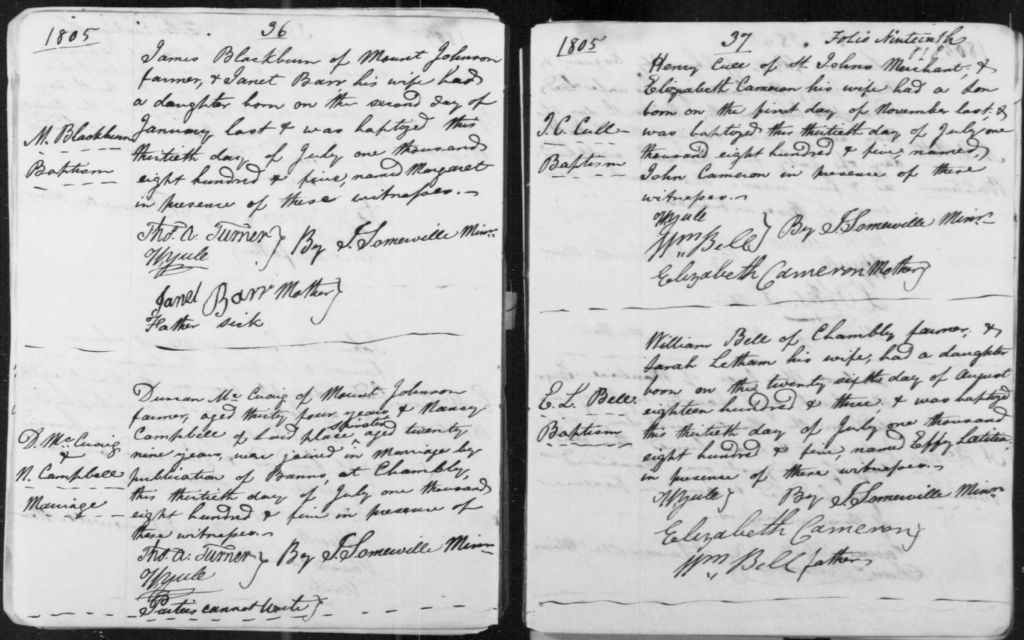 1805
36
James Blackburn of Mount Johnson
farmer, & Janet Barr his wife had
a daughter born on the second day of
January last & was baptized this
thirtieth day of July one thousand
eight hundred & five, named Margaret
in presence of these witnesses.
M. Blackburn
Baptism
Tho.s A. Turner } By J. Somerville Minr.
W Yule
Janet Barr Mother }
Father sick
Duncan Mc Cuaig of Mount Johnson
farmer, aged thirty four years & Nancy
Campbell of said place, spinster, aged twenty
nine years, were joined in marriage by
publication of Banns, at Chambly,
this thirtieth day of July one thousand
eight hundred & five in presence of
these witnesses.
D. Mc Cuaig
&
N. Campbell
Marriage
Tho.s A. Turner } By J. Somerville Minr.
W Yule
Parties cannot write }
1805
37
Folio Ninteenth
Henry Cull of St Johns Merchant, &
Elizabeth Cameron his wife had a son
born on the first day of November last. &
was baptized this thirtieth day of July one
thousand eight hundred & five named,
John Cameron in presence of these
witnesses.
J. C. Cull
Baptism
W Yule
Wm Bell } By J. Somerville Minr.
Elizabeth Cameron Mother }
William Bell of Chambly farmer, &
Sarah Letham his wife, had a daughter
born on the twenty sixth day of August
eighteen hundred & three, & was baptized
this thirtieth day of July one thousand
eight hundred & five, named Effy Latitia
in presence of these witnesses.
E. L. Bell
Baptism
W Yule } By J. Somerville Minr.
Elizabeth Cameron }
Wm Bell father